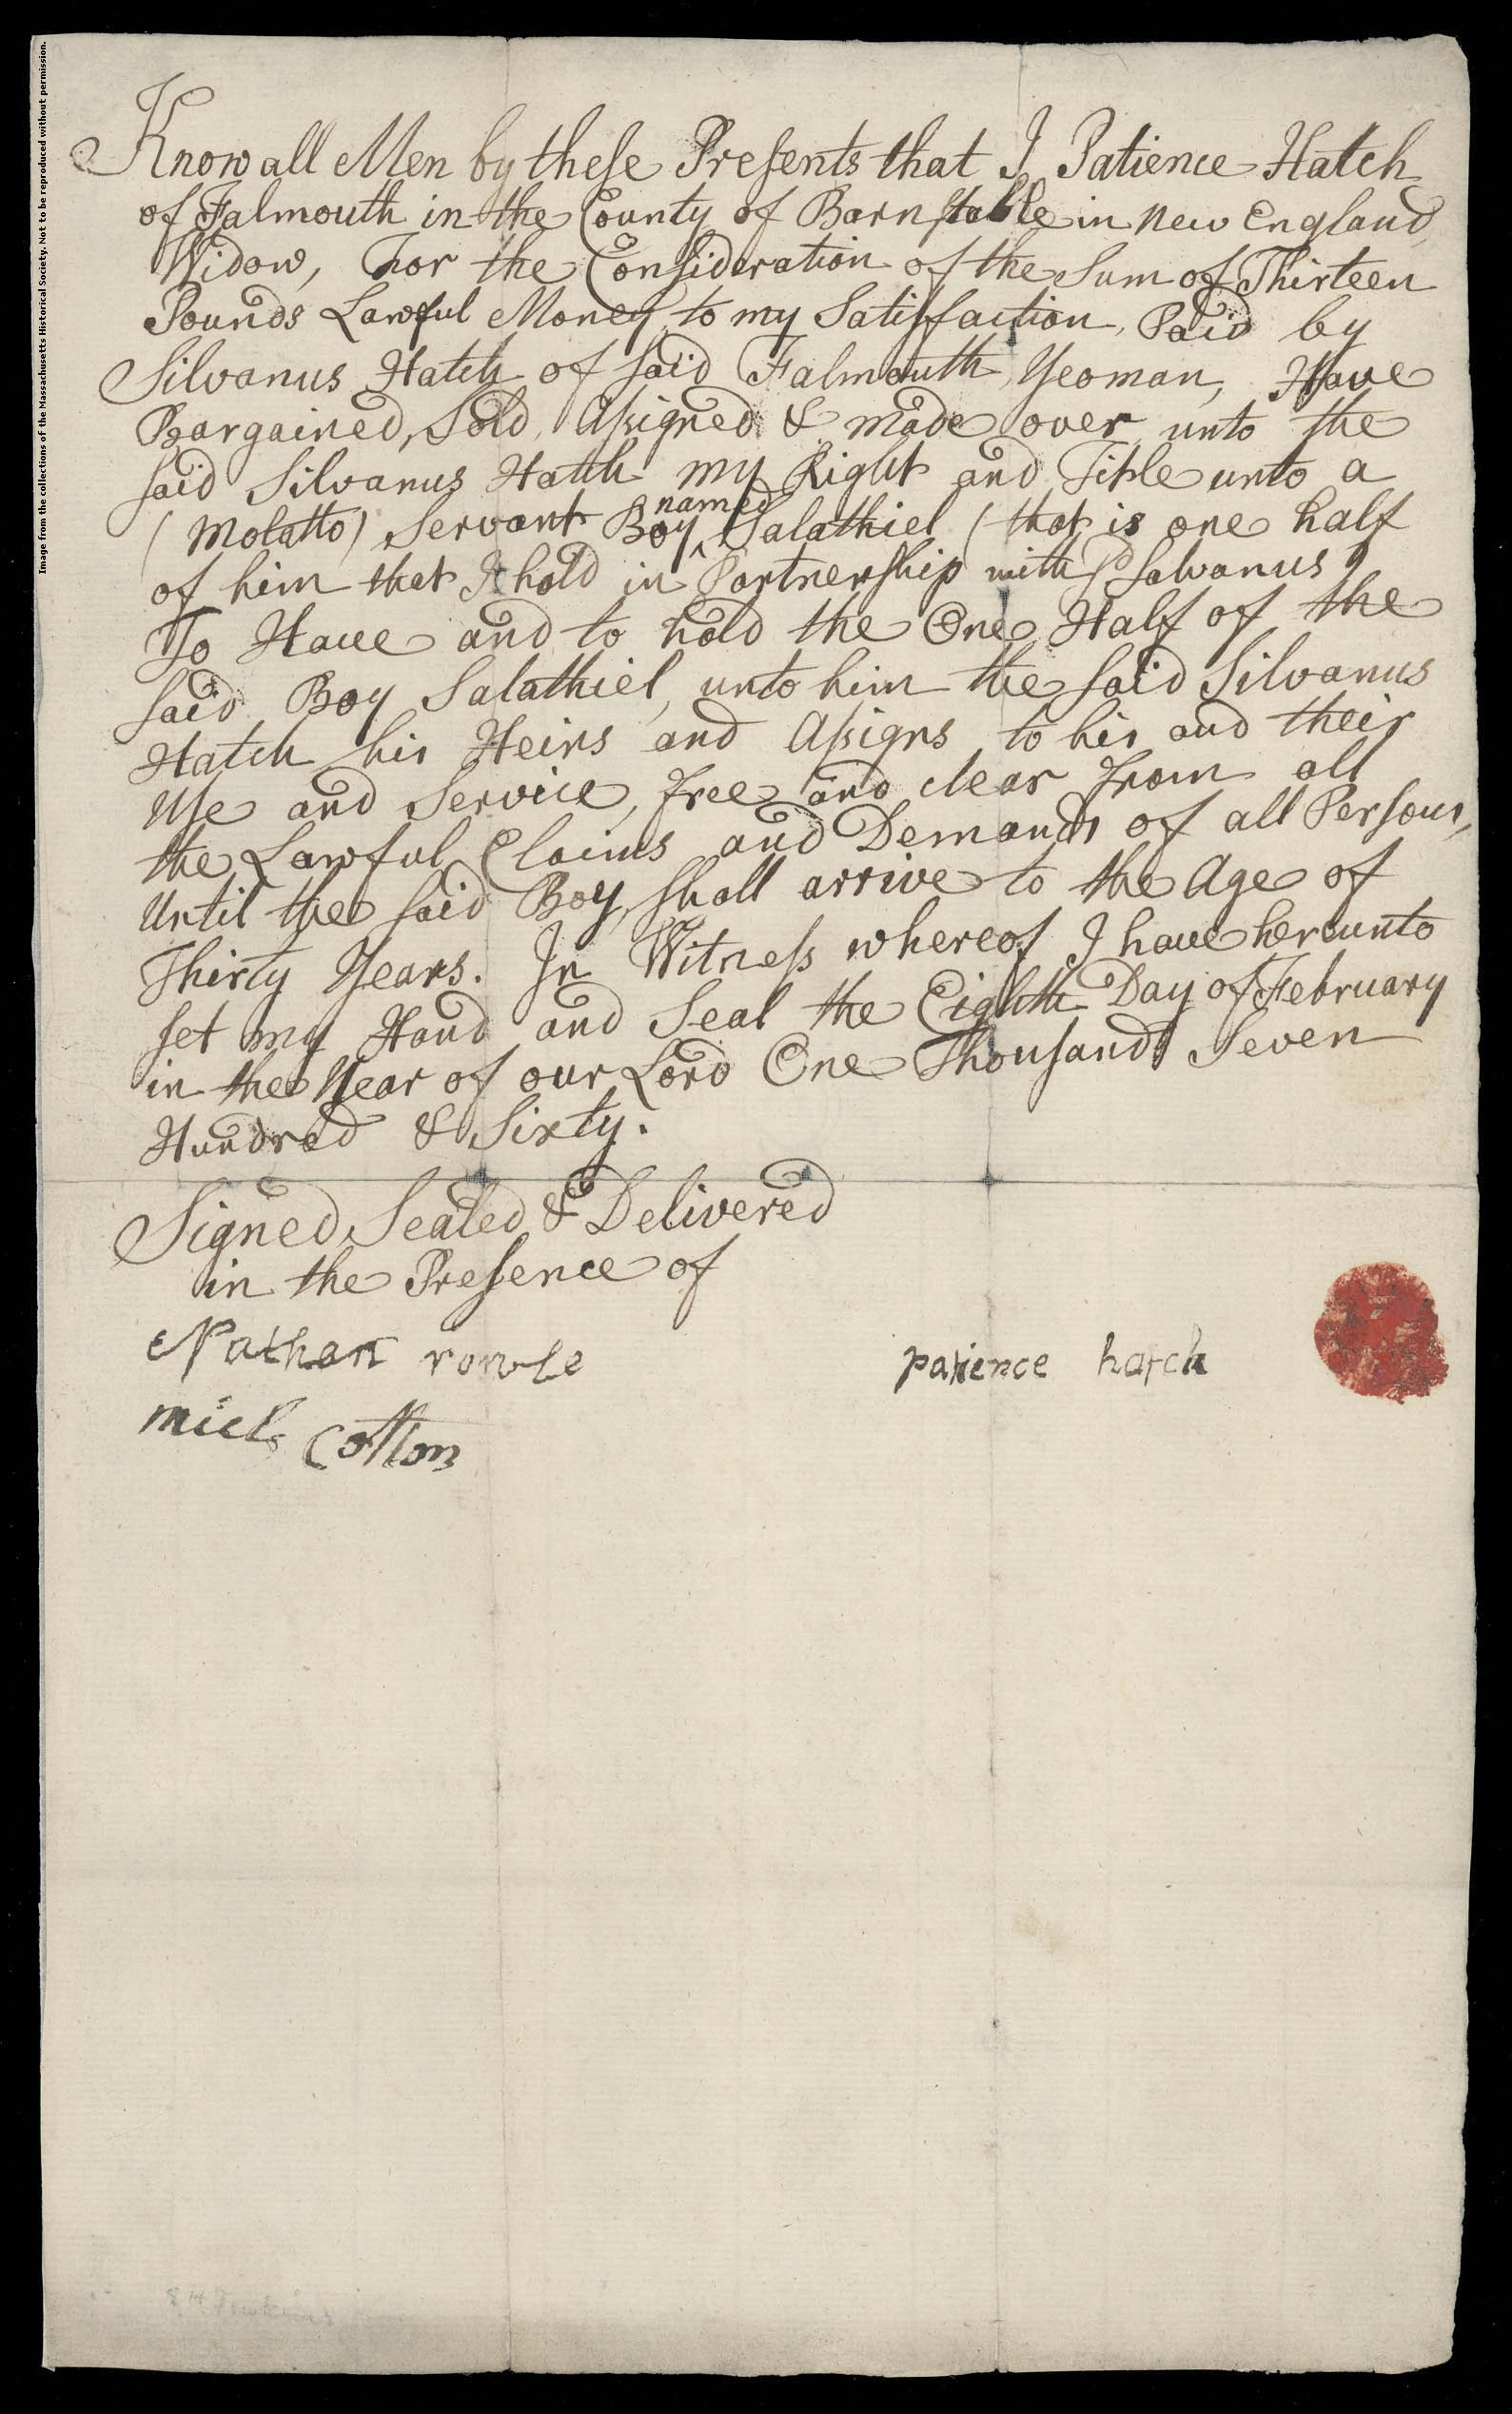 Image from the collections of the Massachusetts Historical Society. Not to be reproduced without permission.
Know all Men by these Presents that I Patience Hatch
of Falmouth in the County of Barnstable in New England,
Widow, For the Consideration of the Sum of Thirteen
Pounds Lawful Money, to my Satisfaction, Paid by
Silvanus Hatch of said Falmouth, Yeoman, Have
Bargained, Sold, Assigned & made over unto the
said Silvanus Hatch my Right and Title unto a
(Molatto) Servant Boy ^named Salathiel (that is one half
of him that I hold in Partnership with sd Salvanus)
To Have and to hold the One Half of the
said Boy Salathiel, unto him the said Silvanus
Hatch his Heirs and Assigns to his and their
Use and Service, free and clear from all
the Lawful Claims and Demands of all Persons,
Until the said Boy shall arrive to the Age of
Thirty Years. In Witness whereof I have hereunto
set my Hand and Seal the Eighth Day of February
in the Year of our Lord One Thousand Seven
Hundred & Sixty.
Signed, Sealed & Delivered
in the Presence of
Nathan rowle
patience hatch
miel Cotton